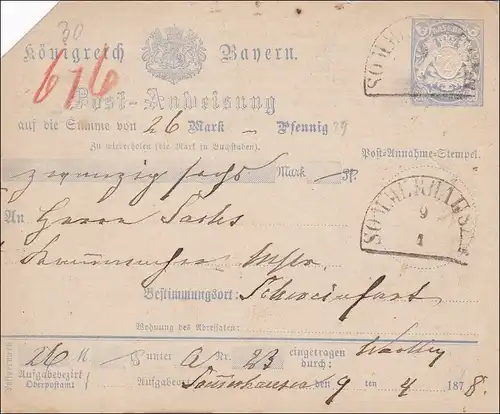 30
Königreich Bayern.
616
SOMMERHAUSEN
Post-Anweisung
auf die Summe von 26 Mark – Pfennig
Zu wiederholen (die Mark in Buchstaben).
Post-Annahme-Stempel.
zwanzig sechs Mark Pf.
SOMMERHAUSEN
9
1
An Herrn Sachs
Bestimmungsort: Schweinfurt
Wohnung des Adressaten:
26 unter A Nr. 23 eingetragen durch:
Aufgabebezirk
Oberpostamt
Aufgabeort Sommerhausen den 9 ten 1878.